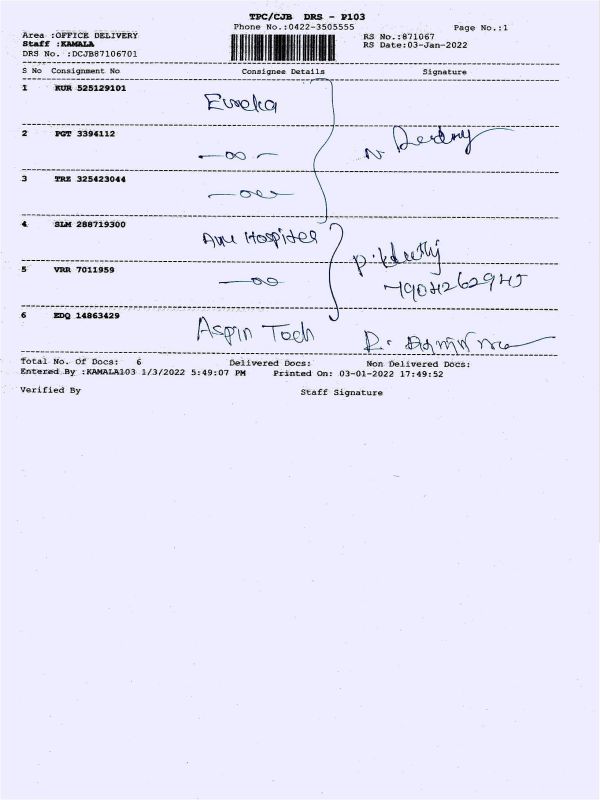 TPC/CJB DRS - P103
Phone No.:0422-3505555 Page No.:1
Area :OFFICE DELIVERY RS No.:871067
Staff :KAMALA RS Date:03-Jan-2022
DRS No. :DCJB87106701
S No Consignment No Consignee Details Signature
1 KUR 525129101 Eureka
2 PGT 3394112
3 TRZ 325423044
4 SLM 288719300 Hospital
5 VRR 7011959
6 EDQ 14863429 Aspin Tech
Total No. Of Docs: 6 Delivered Docs: Non Delivered Docs:
Entered By :KAMALA103 1/3/2022 5:49:07 PM Printed On: 03-01-2022 17:49:52
Verified By Staff Signature